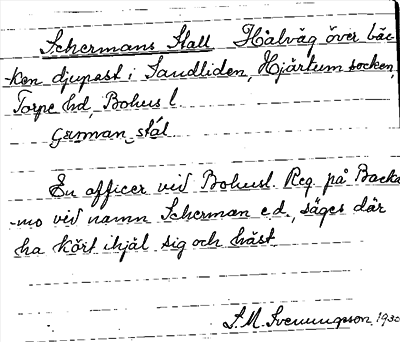 Schermans Stall Hålväg över bäc-
ken djupast i Sandliden, Hjärtum socken,
Torpe hd, Bohus l.
German stål
En officer vid Bohusl. Reg. på Backa
-mo vid namn Scherman e.d., säges där
ha kört ihjäl sig och häst.
S.M. Svenungsson, 1930